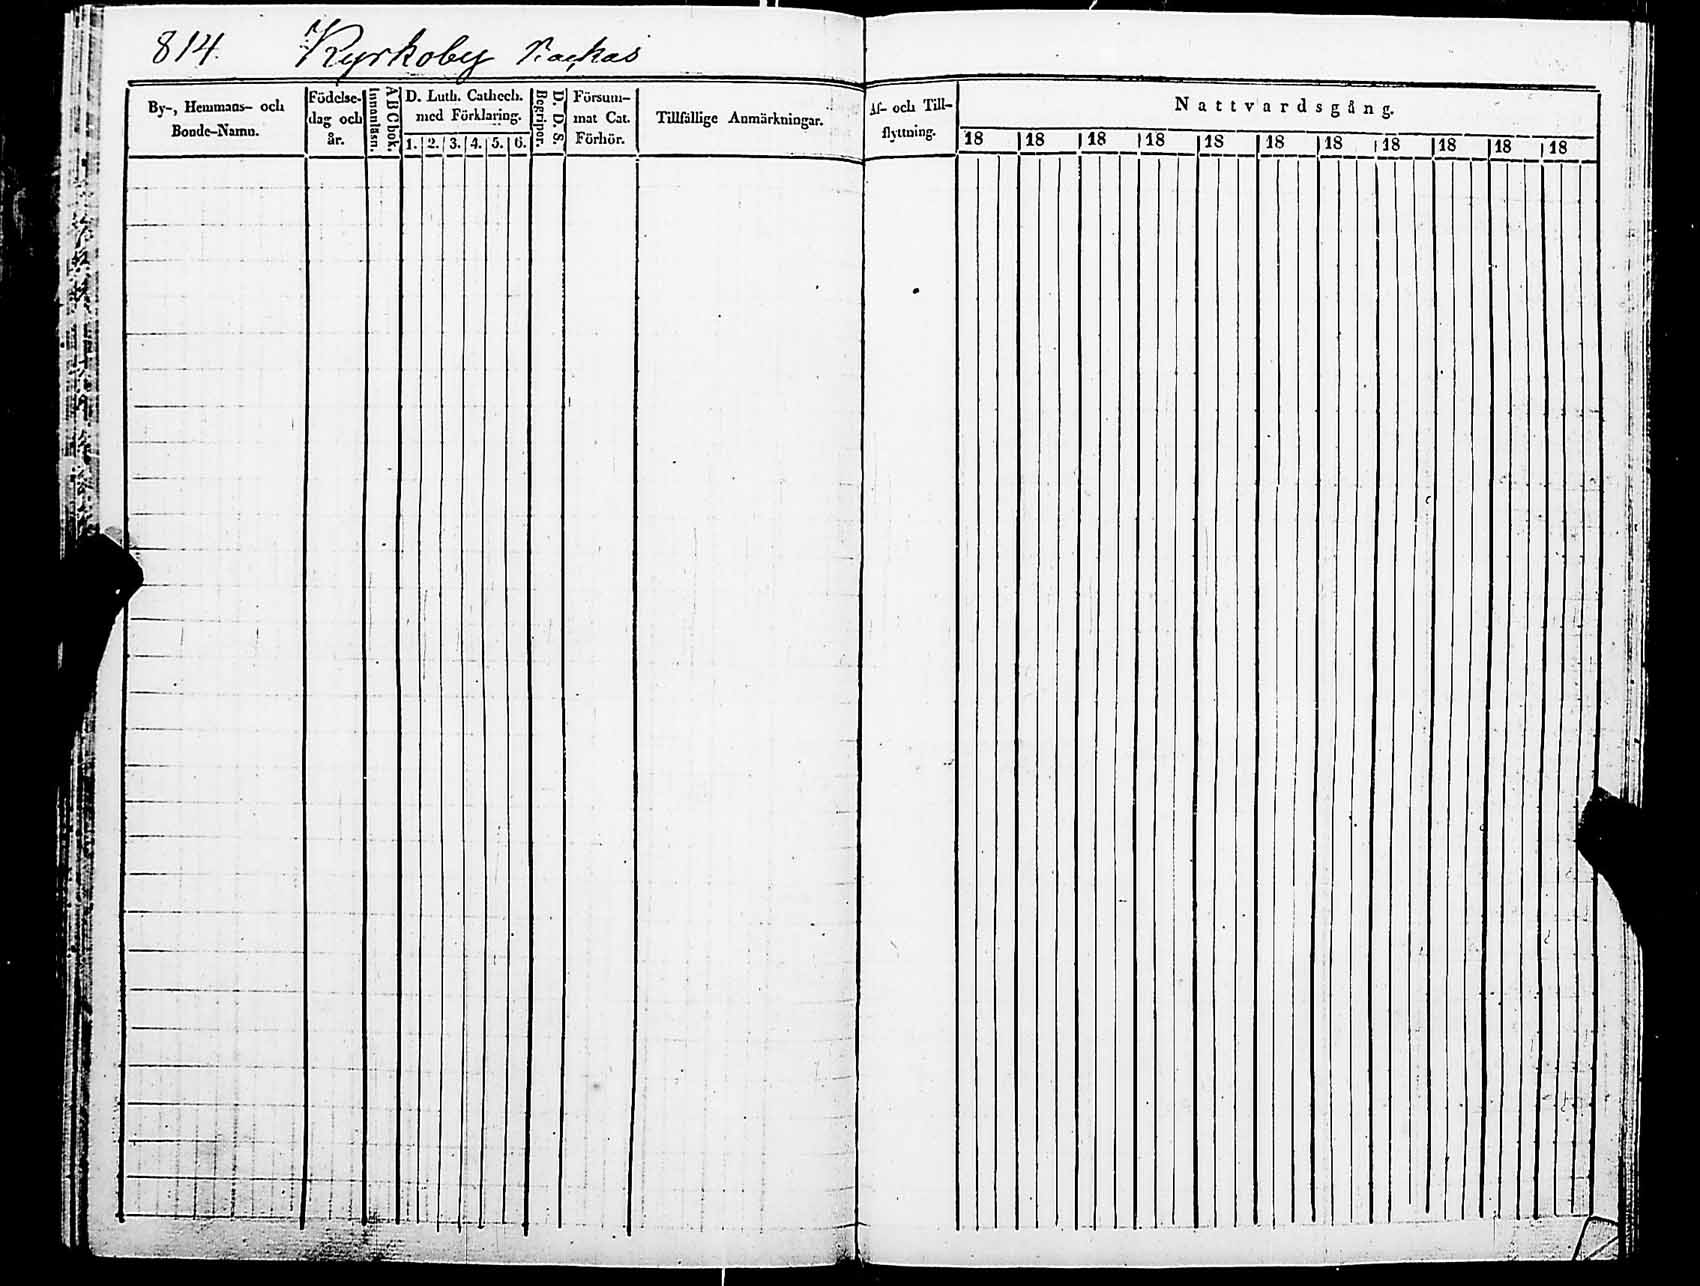 814. Kyrkoby Backas
By-, Hemmans- och Bonde-Namn.
Födelse-dag och år.
Innanläsn.
A B C bok.
D. Luth. Cathech. med Förklaring.
1. 2. 3. 4. 5. 6.
Begriper.
D. D. S.
Försum-mat Cat. Förhör.
Tillfällige Anmärkningar.
Af- och Till-flyttning.
Nattvardsgång.
18 18 18 18 18 18 18 18 18 18 18